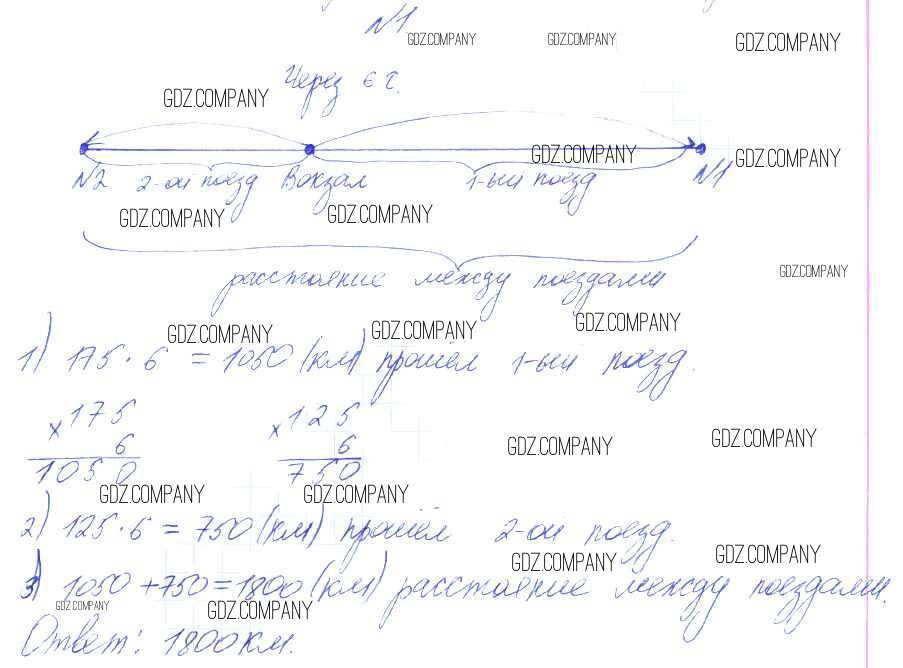 №1
GDZ.COMPANY GDZ.COMPANY GDZ.COMPANY
Через 6 ч.
GDZ.COMPANY
GDZ.COMPANY GDZ.COMPANY
№2 2-ой поезд Вокзал 1-ый поезд №1
GDZ.COMPANY GDZ.COMPANY
расстояние между поездами
GDZ.COMPANY
GDZ.COMPANY GDZ.COMPANY GDZ.COMPANY
1) 175 · 6 = 1050 (км) прошёл 1-ый поезд.
×175 ×125
6 6
1050 750
GDZ.COMPANY GDZ.COMPANY
GDZ.COMPANY GDZ.COMPANY
2) 125 · 6 = 750 (км) прошёл 2-ой поезд.
GDZ.COMPANY GDZ.COMPANY
3) 1050 + 750 = 1800 (км) расстояние между поездами.
GDZ.COMPANY GDZ.COMPANY
Ответ: 1800 км.